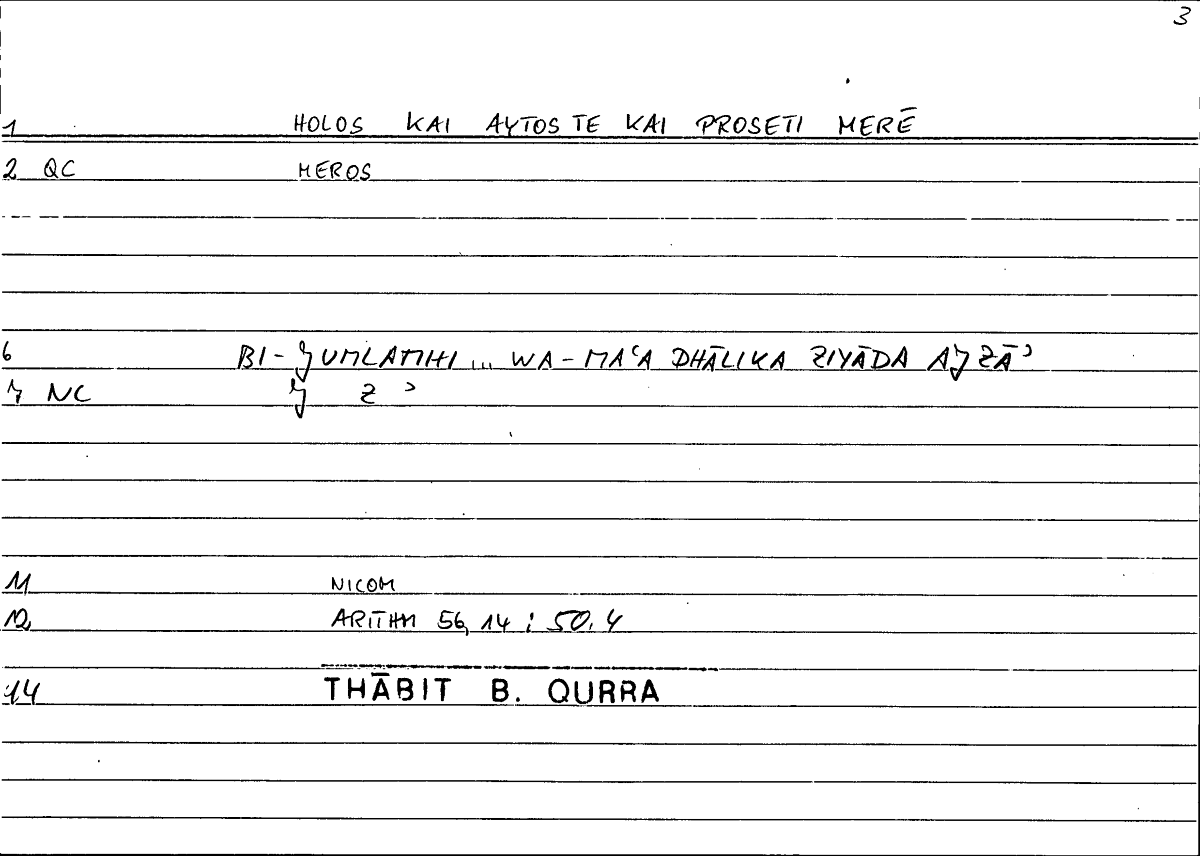 3
1 HOLOS KAI AYTOS TE KAI PROSETI MERĒ
2 QC MEROS
6 BI-JUMLATIHI ... WA-MAʿA DHĀLIKA ZIYĀDA AJZĀʾ
7 NC J Z ʾ
11 NICOM
12 ARITHM 56,14 ; 50.4
14 THĀBIT B. QURRA